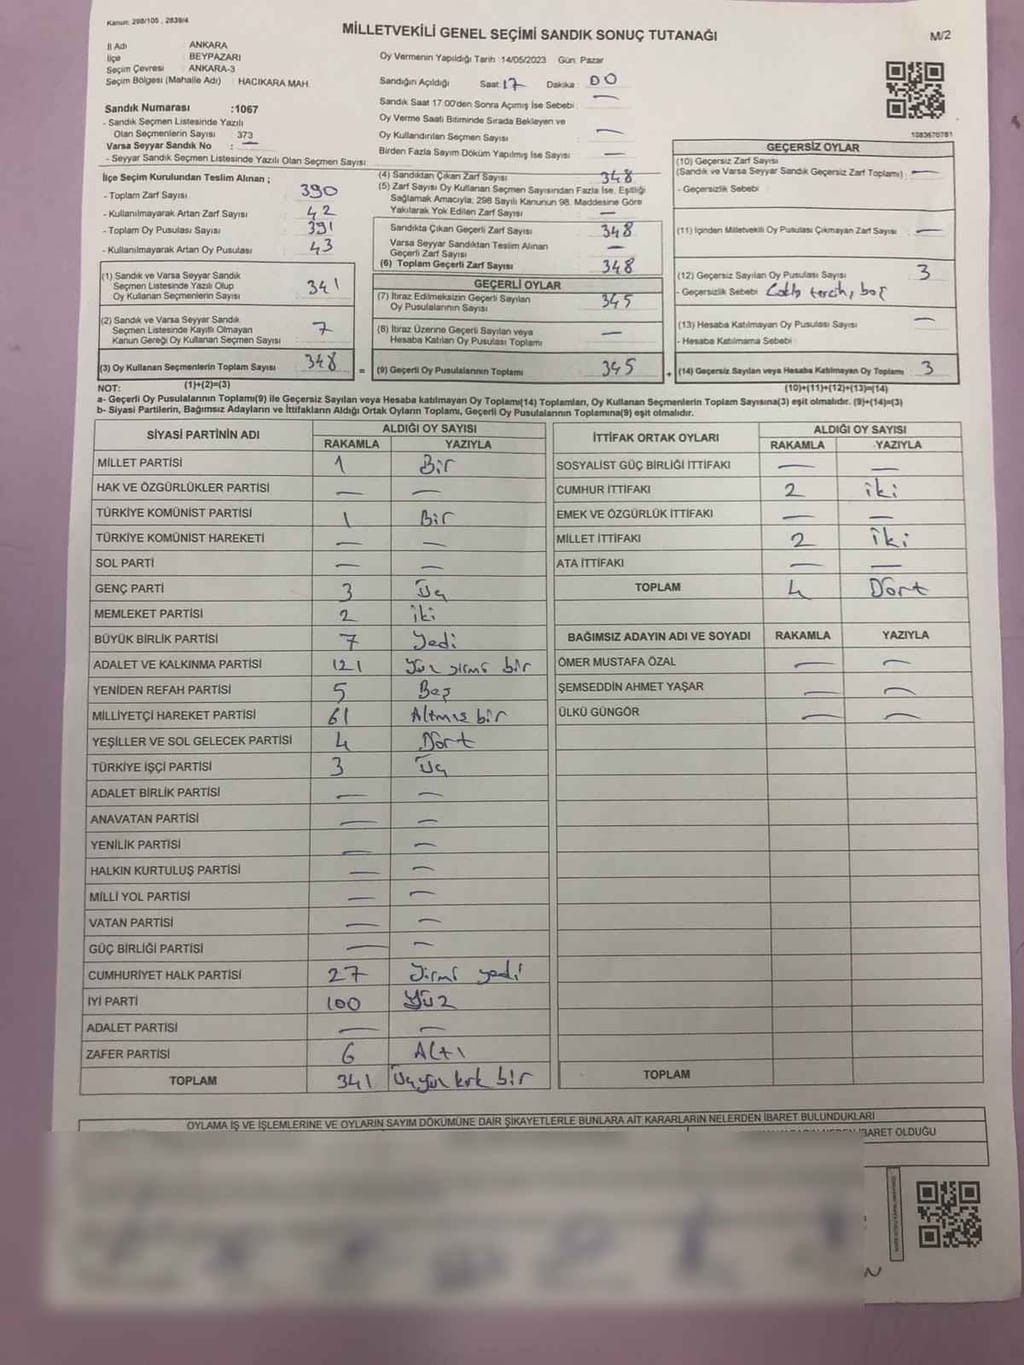 Kanun: 298/105 , 2839/4
MİLLETVEKİLİ GENEL SEÇİMİ SANDIK SONUÇ TUTANAĞI
M/2
İl Adı ANKARA
İlçe BEYPAZARI
Seçim Çevresi ANKARA-3
Seçim Bölgesi (Mahalle Adı) HACIKARA MAH.
Sandık Numarası :1067
- Sandık Seçmen Listesinde Yazılı
Olan Seçmenlerin Sayısı 373
Varsa Seyyar Sandık No : —
- Seyyar Sandık Seçmen Listesinde Yazılı Olan Seçmen Sayısı:
Oy Vermenin Yapıldığı Tarih :14/05/2023 Gün: Pazar
Sandığın Açıldığı Saat: 17 Dakika: 00
Sandık Saat 17:00'den Sonra Açılmış İse Sebebi : —
Oy Verme Saati Bitiminde Sırada Bekleyen ve
Oy Kullandırılan Seçmen Sayısı —
Birden Fazla Sayım Döküm Yapılmış İse Sayısı —
1083670781
İlçe Seçim Kurulundan Teslim Alınan ;
- Toplam Zarf Sayısı 390
- Kullanılmayarak Artan Zarf Sayısı 42
- Toplam Oy Pusulası Sayısı 391
- Kullanılmayarak Artan Oy Pusulası 43
(1) Sandık ve Varsa Seyyar Sandık
Seçmen Listesinde Yazılı Olup
Oy Kullanan Seçmenlerin Sayısı 341
(2) Sandık ve Varsa Seyyar Sandık
Seçmen Listesinde Kayıtlı Olmayan
Kanun Gereği Oy Kullanan Seçmen Sayısı 7
(3) Oy Kullanan Seçmenlerin Toplam Sayısı 348
(4) Sandıktan Çıkan Zarf Sayısı 348
(5) Zarf Sayısı Oy Kullanan Seçmen Sayısından Fazla İse, Eşitliği
Sağlamak Amacıyla, 298 Sayılı Kanunun 98. Maddesine Göre
Yakılarak Yok Edilen Zarf Sayısı —
Sandıkta Çıkan Geçerli Zarf Sayısı 348
Varsa Seyyar Sandıktan Teslim Alınan
Geçerli Zarf Sayısı —
(6) Toplam Geçerli Zarf Sayısı 348
GEÇERLİ OYLAR
(7) İtiraz Edilmeksizin Geçerli Sayılan
Oy Pusulalarının Sayısı 345
(8) İtiraz Üzerine Geçerli Sayılan veya
Hesaba Katılan Oy Pusulası Toplamı —
= (9) Geçerli Oy Pusulalarının Toplamı 345
GEÇERSİZ OYLAR
(10) Geçersiz Zarf Sayısı
(Sandık ve Varsa Seyyar Sandık Geçersiz Zarf Toplamı) : —
- Geçersizlik Sebebi
(11) İçinden Milletvekili Oy Pusulası Çıkmayan Zarf Sayısı —
(12) Geçersiz Sayılan Oy Pusulası Sayısı 3
- Geçersizlik Sebebi tercih, boş
(13) Hesaba Katılmayan Oy Pusulası Sayısı —
- Hesaba Katılmama Sebebi
+ (14) Geçersiz Sayılan veya Hesaba Katılmayan Oy Toplamı 3
NOT: (1)+(2)=(3)
(10)+(11)+(12)+(13)=(14)
a- Geçerli Oy Pusulalarının Toplamı(9) ile Geçersiz Sayılan veya Hesaba katılmayan Oy Toplamı(14) Toplamları, Oy Kullanan Seçmenlerin Toplam Sayısına(3) eşit olmalıdır. (9)+(14)=(3)
b- Siyasi Partilerin, Bağımsız Adayların ve İttifakların Aldığı Ortak Oyların Toplamı, Geçerli Oy Pusulalarının Toplamına(9) eşit olmalıdır.
SİYASİ PARTİNİN ADI ALDIĞI OY SAYISI
RAKAMLA YAZIYLA
MİLLET PARTİSİ 1 Bir
HAK VE ÖZGÜRLÜKLER PARTİSİ — —
TÜRKİYE KOMÜNİST PARTİSİ 1 Bir
TÜRKİYE KOMÜNİST HAREKETİ — —
SOL PARTİ — —
GENÇ PARTİ 3 Üç
MEMLEKET PARTİSİ 2 iki
BÜYÜK BİRLİK PARTİSİ 7 Yedi
ADALET VE KALKINMA PARTİSİ 121 Yüz yirmi bir
YENİDEN REFAH PARTİSİ 5 Beş
MİLLİYETÇİ HAREKET PARTİSİ 61 Altmış bir
YEŞİLLER VE SOL GELECEK PARTİSİ 4 Dört
TÜRKİYE İŞÇİ PARTİSİ 3 Üç
ADALET BİRLİK PARTİSİ — —
ANAVATAN PARTİSİ — —
YENİLİK PARTİSİ — —
HALKIN KURTULUŞ PARTİSİ — —
MİLLİ YOL PARTİSİ — —
VATAN PARTİSİ — —
GÜÇ BİRLİĞİ PARTİSİ — —
CUMHURİYET HALK PARTİSİ 27 Yirmi yedi
İYİ PARTİ 100 Yüz
ADALET PARTİSİ — —
ZAFER PARTİSİ 6 Altı
TOPLAM 341 Üçyüz kırk bir
İTTİFAK ORTAK OYLARI ALDIĞI OY SAYISI
RAKAMLA YAZIYLA
SOSYALİST GÜÇ BİRLİĞİ İTTİFAKI — —
CUMHUR İTTİFAKI 2 iki
EMEK VE ÖZGÜRLÜK İTTİFAKI — —
MİLLET İTTİFAKI 2 iki
ATA İTTİFAKI — —
TOPLAM 4 Dört
BAĞIMSIZ ADAYIN ADI VE SOYADI RAKAMLA YAZIYLA
ÖMER MUSTAFA ÖZAL — —
ŞEMSEDDİN AHMET YAŞAR — —
ÜLKÜ GÜNGÖR — —
TOPLAM
OYLAMA İŞ VE İŞLEMLERİNE VE OYLARIN SAYIM DÖKÜMÜNE DAİR ŞİKAYETLERLE BUNLARA AİT KARARLARIN NELERDEN İBARET BULUNDUKLARI
OLDUĞU